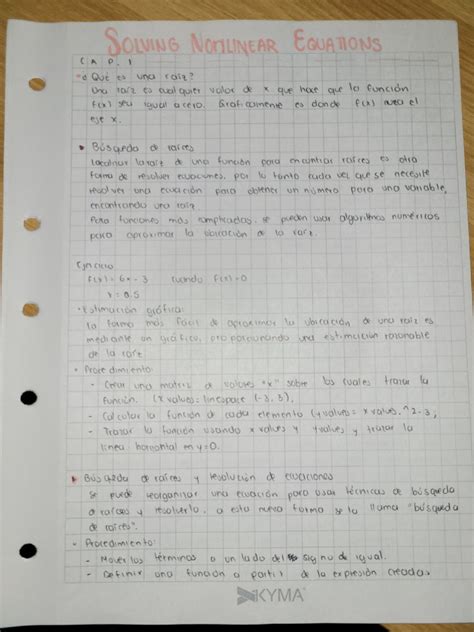 SOLVING NONLINEAR EQUATIONS
CAP. 1
¿Qué es una raíz?
Una raíz es cualquier valor de x que hace que la función
f(x) sea igual a cero. Gráficamente es donde f(x) cruza el
eje x.
Búsqueda de raíces
Localizar la raíz de una función para encontrar raíces es otra
forma de resolver ecuaciones, por lo tanto cada vez que se necesite
resolver una ecuación para obtener un número para una variable,
encontrando una raíz.
Para funciones más complicadas, se pueden usar algoritmos numéricos
para aproximar la ubicación de la raíz.
Ejercicio
f(x) = 6x - 3 cuando f(x)=0
x = 0.5
· Estimación gráfica:
la forma más fácil de aproximar la ubicación de una raíz es
mediante un gráfico, proporcionando una estimación razonable
de la raíz
· Procedimiento:
- Crear una matriz de valores "x" sobre los cuales trazar la
función. (xvalues=linespace (-3, 3),
- Calcular la función de cada elemento (yvalues= xvalues.^2-3;
- Trazar la función usando xvalues y yvalues y trazar la
línea horizontal en y=0.
Búsqueda de raíces y resolución de ecuaciones
se puede reorganizar una ecuación para usar técnicas de búsqueda
de raíces y resolverlo, a esta nueva forma se la llama "búsqueda
de raíces".
· Procedimiento:
- Mover los términos a un lado del signo de igual.
- Definir una función a partir de la expresión creada.
KYMA